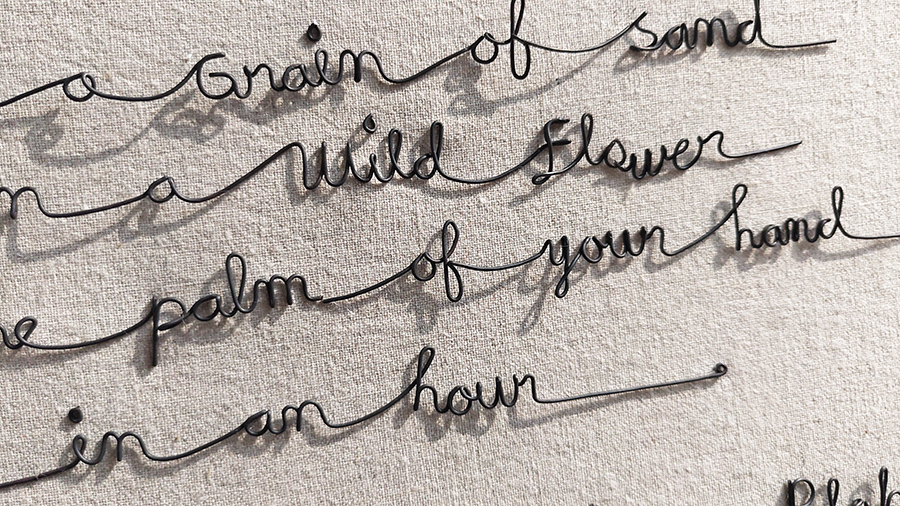 a Grain of sand
a Wild Flower
palm of your hand
in an hour